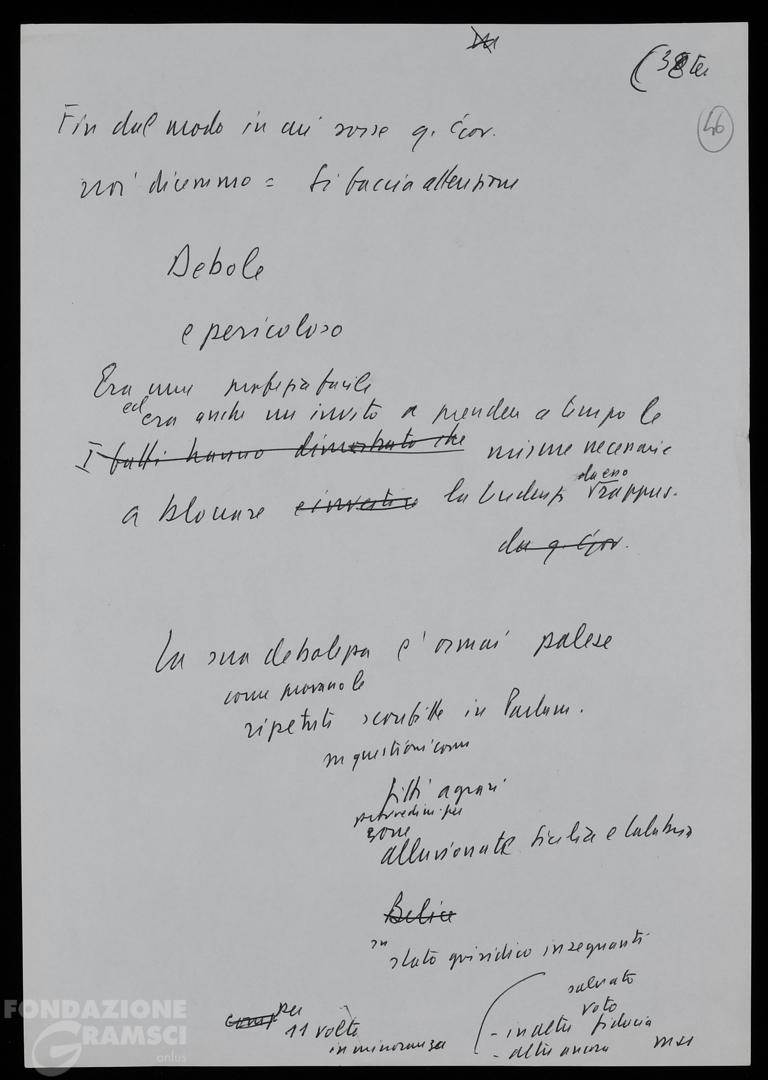 (38 ter
46
Fin dal modo in cui sorse q. Gov.
noi dicemmo = Si faccia attenzione
Debole
e pericoloso
Era una profezia facile
ed era anche un invito a prendere a tempo le
I fatti hanno dimostrato che misure necessarie
a bloccare e invertire la tendenza da esso rappres.
da q. Gov.
La sua debolezza e' ormai palese
come provano le
ripetute sconfitte in Parlam.
su questioni come
fitti agrari
provvedim. per
zone
alluvionate Sicilia e Calabria
Belice
su
stato giuridico insegnanti
per
11 volte
in minoranza
salvato
voto
- in altre fiducia
- altre ancora MSI
FONDAZIONE
GRAMSCI
onlus